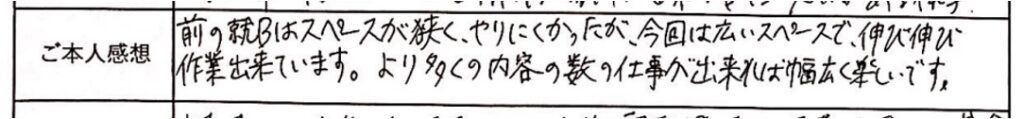 ご本人感想
前の就Bはスペースが狭く、やりにくかったが、今回は広いスペースで、伸び伸び
作業出来ています。より多くの内容の数の仕事が出来れば幅広く楽しいです。